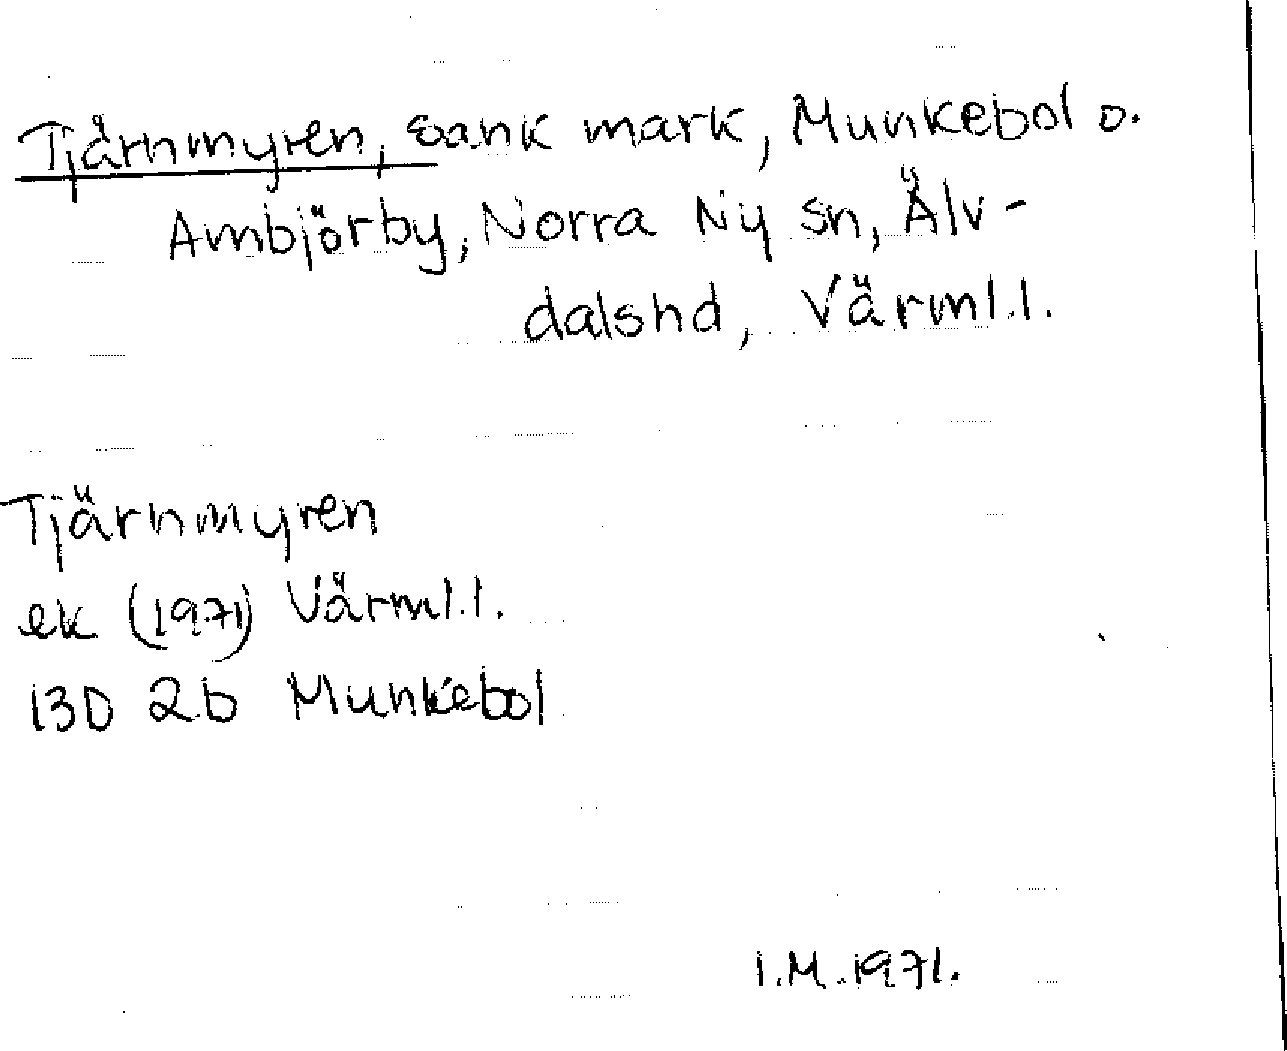 Tjärnmyren, sank mark, Munkebol o.
Ambjörby, Norra Ny sn, Älv-
dalshd, Värml.l.
Tjärnmyren
ek (1971) Värml.l.
13D 2b Munkebol
I.M.1971.